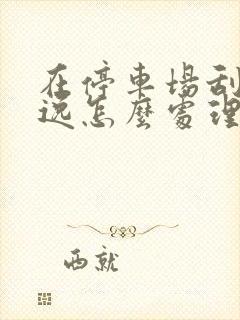 在停車場刮
远怎麼處理
西就